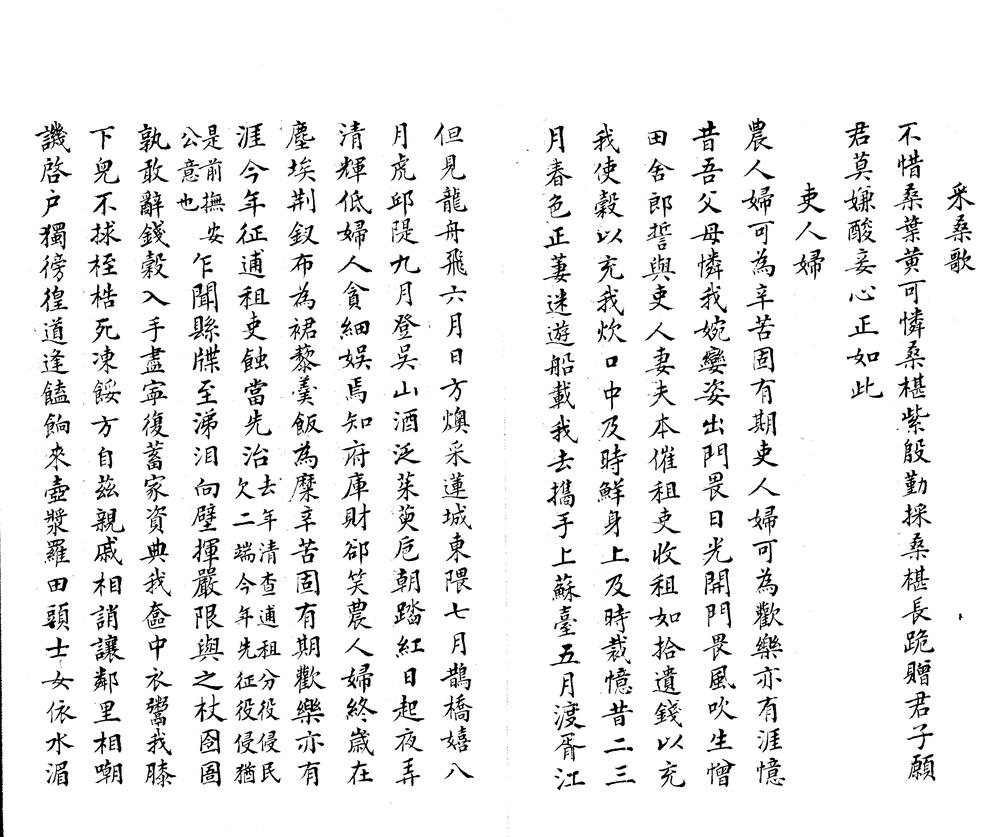 采桑歌
不惜桑葉黄可憐桑椹紫殷勤採桑椹長跪贈君子願
君莫嫌酸妾心正如此
吏人婦
農人婦可為辛苦固有期吏人婦可為歡樂亦有涯憶
昔吾父母憐我婉孌姿出門畏日光開門畏風吹生憎
田舍郎誓與吏人妻夫本催租吏收租如拾遺錢以充
我使穀以充我炊口中及時鮮身上及時裁憶昔二三
月春色正萋迷遊船載我去攜手上蘇臺五月渡胥江
但見龍舟飛六月日方燠采蓮城東隈七月鵲橋嬉八
月虎邱隄九月登吳山酒泛茱萸卮朝踏紅日起夜弄
清輝低婦人貪細娛焉知府庫財卻笑農人婦終歲在
塵埃荆釵布為裙藜羹飯為糜辛苦固有期歡樂亦有
涯今年征逋租吏蝕當先治去年清查逋租分役侵民
欠二端今年先征役侵猶
是前撫安
公意也
乍聞縣牒至涕泪向壁揮嚴限與之杖囹圄
孰敢辭錢穀入手盡寧復蓄家資典我奩中衣鬻我膝
下兒不捄桎梏死凍餒方自茲親戚相誚讓鄰里相嘲
譏啓戶獨徬徨道逢饁餉來壺漿羅田頭士女依水湄